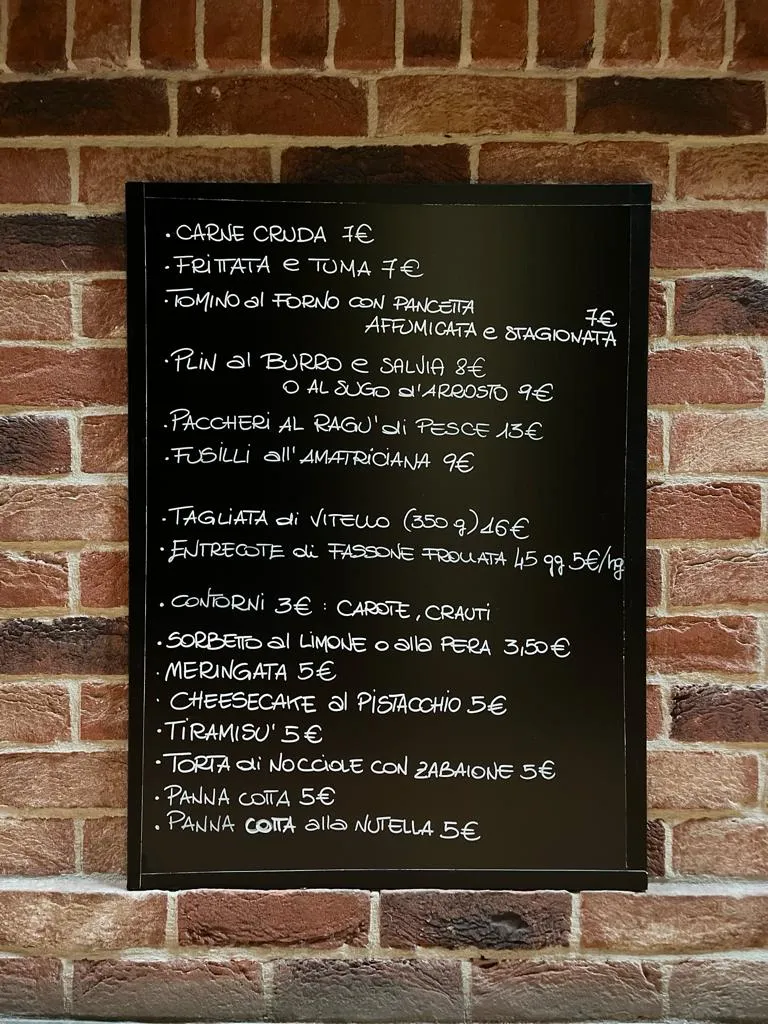 · CARNE CRUDA 7€
· FRITTATA e TUMA 7€
· TOMINO al FORNO CON PANCETTA
AFFUMICATA e STAGIONATA 7€
· PLIN al BURRO e SALVIA 8€
O AL SUGO d'ARROSTO 9€
· PACCHERI AL RAGU' di PESCE 13€
· FUSILLI all'AMATRICIANA 9€
· TAGLIATA di VITELLO (350 g) 16€
· ENTRECOTE di FASSONE FROLLATA 45 gg 5€/hg
· CONTORNI 3€ : CAROTE, CRAUTI
· SORBETTO al LIMONE o alla PERA 3,50€
· MERINGATA 5€
· CHEESECAKE al PISTACCHIO 5€
· TIRAMISU' 5€
· TORTA di NOCCIOLE CON ZABAIONE 5€
· PANNA COTTA 5€
· PANNA COTTA alla NUTELLA 5€